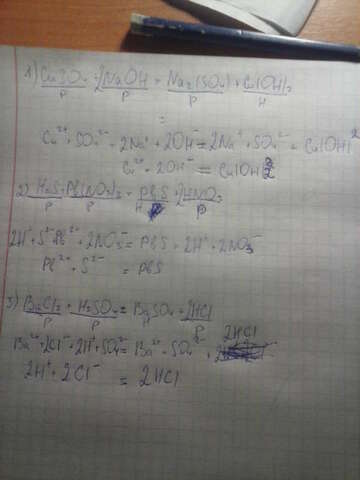 1) CuSO₄ + 2NaOH = Na₂(SO₄) + Cu(OH)₂
р р р н
=
Cu²⁺ + SO₄²⁻ + 2Na⁺ + 2OH⁻ = 2Na⁺ + SO₄²⁻ + Cu(OH)2
Cu²⁺ + 2OH⁻ = Cu(OH)2
2) H₂S + Pb(NO₃)₂ = PbS + 2HNO₃
р р н р
2H⁺ + S²⁻ + Pb²⁺ + 2NO₃⁻ = PbS + 2H⁺ + 2NO₃⁻
Pb²⁺ + S²⁻ = PbS
3) BaCl₂ + H₂SO₄ = BaSO₄ + 2HCl
р р р
Ba²⁺ + 2Cl⁻ + 2H⁺ + SO₄²⁻ = Ba²⁺ + SO₄²⁻ + 2HCl
2H⁺ + 2Cl⁻ = 2HCl